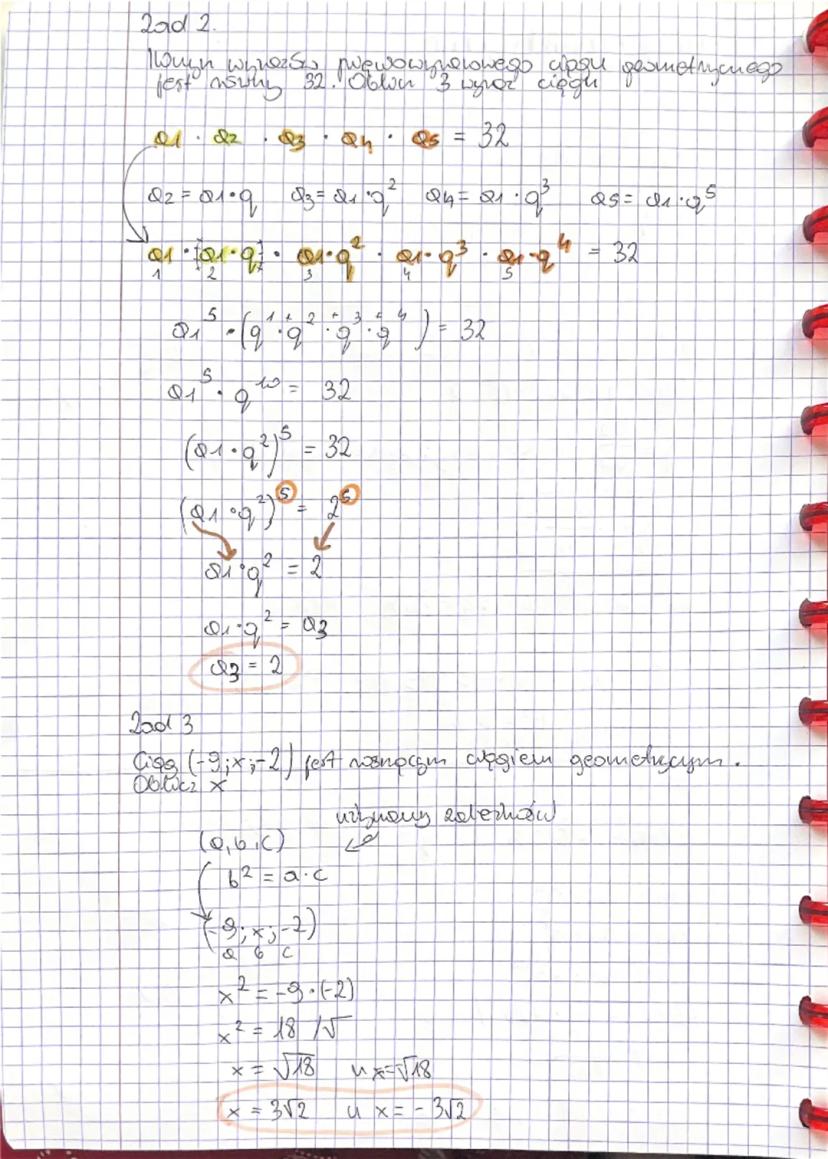 Zad 2.
Iloczyn wyrazów pięciowyrazowego ciągu geometrycznego
jest równy 32. Oblicz 3 wyraz ciągu
a1 · a2 · a3 · a4 · a5 = 32
a2 = a1·q a3 = a1·q² a4 = a1·q³ a5 = a1·q⁵
a1 · [a1·q] · a1·q² · a1·q³ · a1·q⁴ = 32
1 2 3 4 5
a1⁵ · (q¹ · q² · q³ · q⁴) = 32
a1⁵ · q¹⁰ = 32
(a1 · q²)⁵ = 32
(a1 · q²)⁵ = 2⁵
a1 · q² = 2
a1 · q² = a3
a3 = 2
Zad 3
Ciąg (-9; x; -2) jest rosnącym ciągiem geometrycznym.
Oblicz x
używamy zależności
(a, b, c)
b² = a·c
(-9; x; -2)
a b c
x² = -9·(-2)
x² = 18 /√
x = √18 u x=-√18
x = 3√2 u x = -3√2